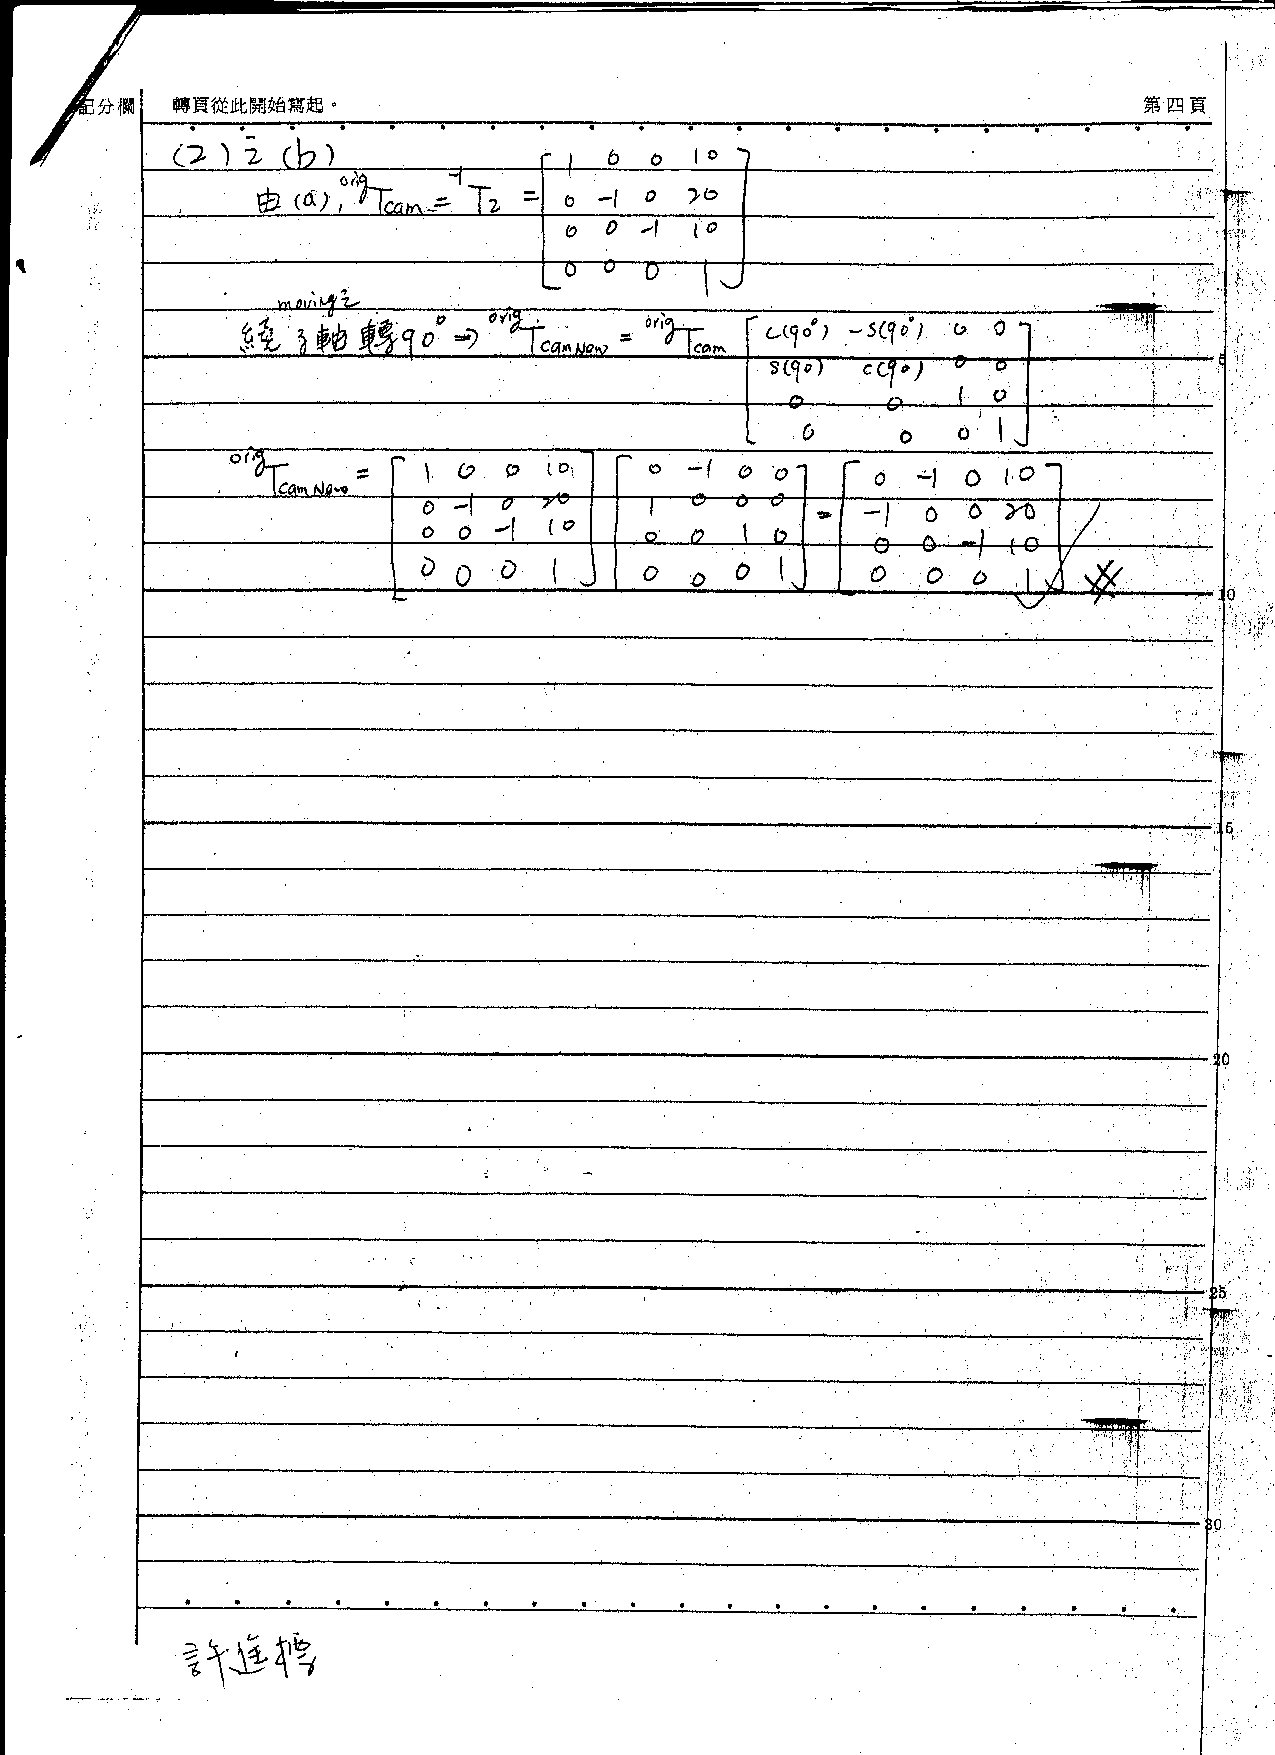 記分欄 轉頁從此開始寫起。 第四頁
(2)之(b)
由(a), ᵒʳⁱᵍT_cam = ⁻¹T₂ = [1 0 0 10; 0 -1 0 20; 0 0 -1 10; 0 0 0 1]
繞 moving之 z軸 轉90° → ᵒʳⁱᵍT_camNew = ᵒʳⁱᵍT_cam [c(90°) -s(90°) 0 0; s(90) c(90) 0 0; 0 0 1 0; 0 0 0 1]
5
ᵒʳⁱᵍT_camNew = [1 0 0 10; 0 -1 0 20; 0 0 -1 10; 0 0 0 1] [0 -1 0 0; 1 0 0 0; 0 0 1 0; 0 0 0 1] = [0 -1 0 10; -1 0 0 20; 0 0 -1 10; 0 0 0 1] #
10
15
20
25
30